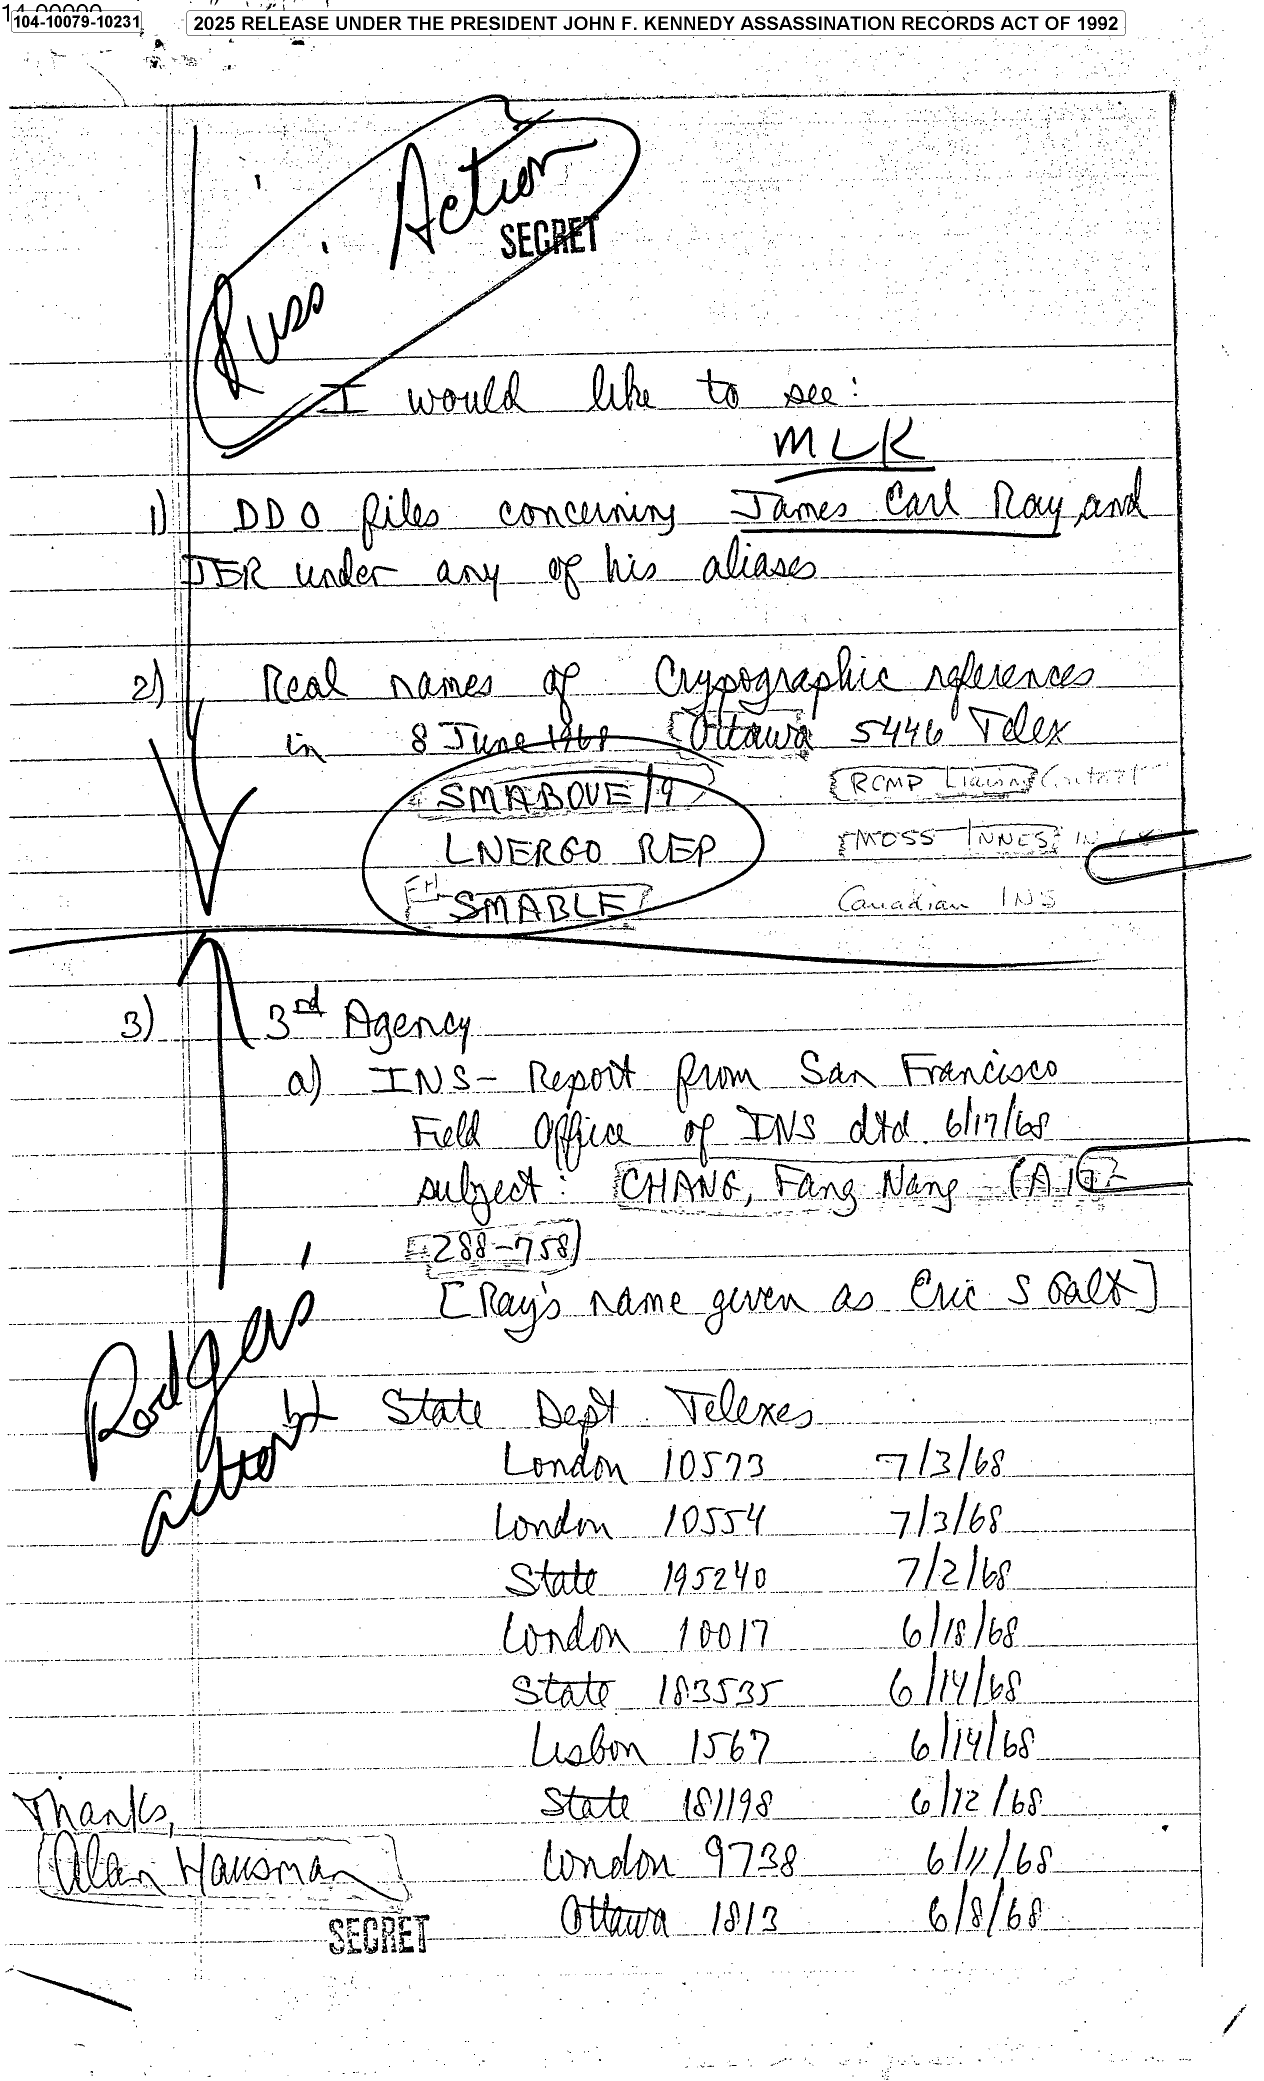 14-00000
104-10079-10231
2025 RELEASE UNDER THE PRESIDENT JOHN F. KENNEDY ASSASSINATION RECORDS ACT OF 1992
Russ' Action
SECRET
I would like to see:
MLK
1) DDO files concerning James Earl Ray, and
JER under any of his aliases
2) Real names of Crypographic references
in 8 June 1968 Ottawa 5446 Telex
SMABOVE/9 RCMP Liaison
LNERGO REP MOSS INNES IN
SMABLE Canadian INS
3) 3rd Agency
a) INS- Report from San Francisco
Field Office of INS dtd. 6/17/68
subject: CHANG, Fang Nang (A
288-758)
[Ray's name given as Eric S Galt]
Rodgers'
action
b) State Dept Telexes
London 10573 7/3/68
London 10554 7/3/68
State 195240 7/2/68
London 10017 6/18/68
State 183535 6/14/68
Lisbon 1567 6/14/68
State 181198 6/12/68
London 9738 6/11/68
Ottawa 1813 6/8/68
Thanks,
Alan Hausman
SECRET